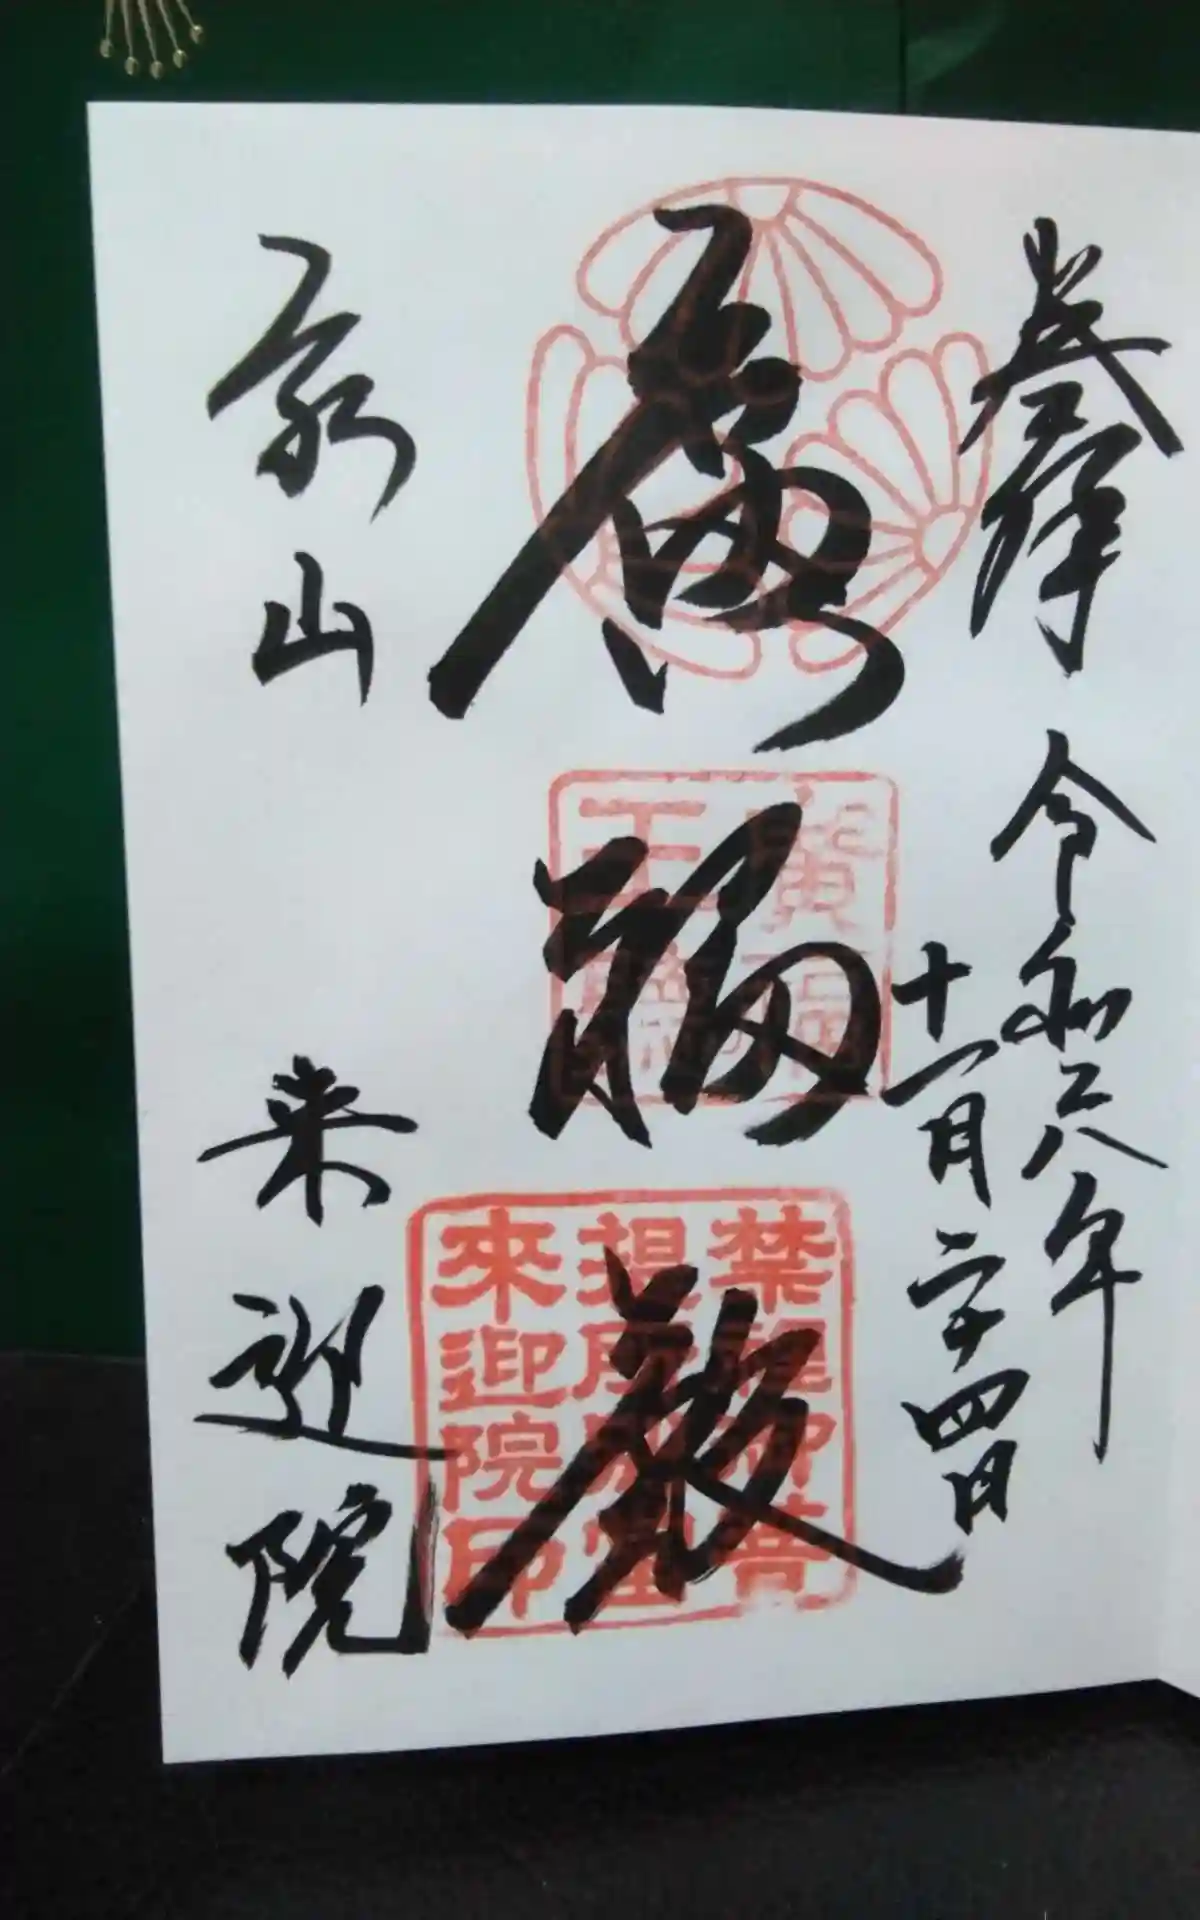 奉拝 令和六年
十一月二十四日
廣福殿
泉山 来迎院
禁裡御菩
提所別當
來迎院印